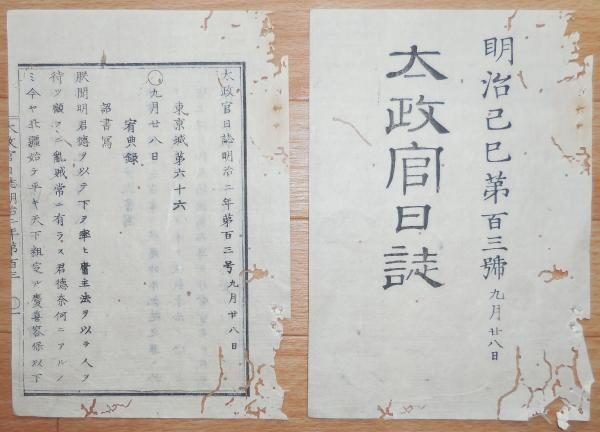 明治己巳第百三號 九月廿八日
太政官日誌
太政官日誌明治二年第百三号 九月廿八日
東京城第六十六
○九月廿八日
宥典録
詔書寫
朕聞明君德ヲ以テ下ヲ率ヒ庸主法ヲ以テ人ヲ
待ツ顧フニ亂賊常ニ有ラス君德奈何ニアルノ
ミ今ヤ北疆始テ平キ天下粗定ル慶喜容保以下
太政官日誌明治二年第百三